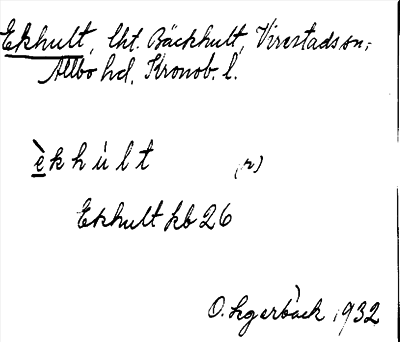 Ekhult, lht. Bäckhult, Virestads sn;
Allbo hd. Kronob. l.
èkhúlt (n)
Ekhult kb 26
1932